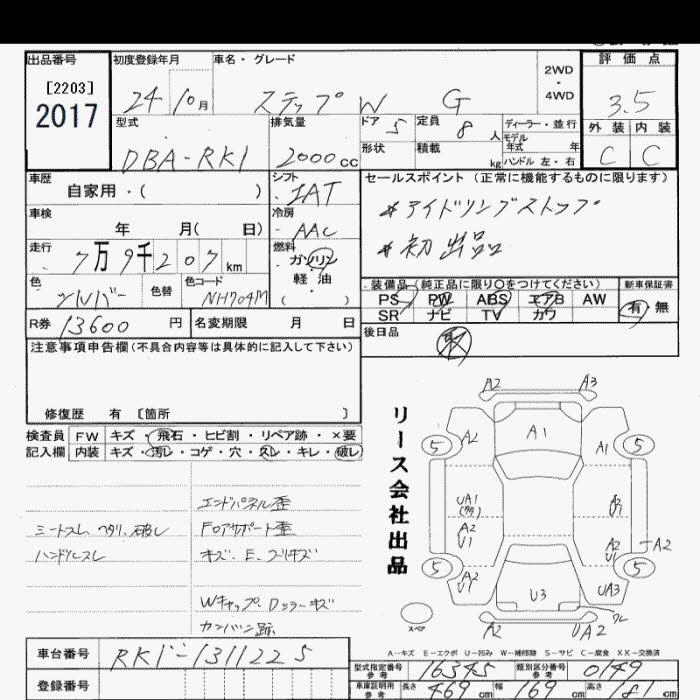 出品番号 初度登録年月 車名・グレード 2WD・4WD 評価点
[2203]
2017 24年10月 ステップW G 3.5
型式 排気量 ドア 5 定員 8人 ディーラー・並行 外装 内装
DBA-RK1 2000cc 形状 積載 kg モデル年式 年 ハンドル 左・右 C C
車歴 シフト セールスポイント(正常に機能するものに限ります)
自家用・( ) IAT
車検 冷房 *アイドリングストップ
年 月( 日) AAC
走行 燃料 *初出品
7万9千207km ガソリン
色 色替 色コード 軽油 装備品(純正品に限り○をつけてください) 新車保証書
シルバー NH704M ( ) PS PW ABS エアB AW 有 無
R券 13600円 名変期限 月 日 SR ナビ TV カワ
後日品
注意事項申告欄(不具合内容等は具体的に記入して下さい)
取
修復歴 有 〔箇所 〕
検査員 FW キズ・飛石・ヒビ割・リペア跡・×要
記入欄 内装 キズ・汚レ・コゲ・穴・スレ・キレ・破レ
リース会社出品
エンドパネル歪
シートスレ、ヘタリ、破レ Fロアサポート歪
ハンドルスレ キズ、E、プリキズ
Wキャップ、Dミラーキズ
カンバン跡
A2 A3
5 A2 A1 A1 5
UA1 A2
(ワレ) U1
A2 A2
U1 U1 A2
5 A2 5
U1 U3 UA3
スペア A2 A2
A-キズ E-エクボ U-凹み W-補修跡 S-サビ C-腐食 XX-交換済
車台番号 RK1-1311225 型式指定番号 16345 類別区分番号 0149
登録番号 車庫証明用参考 長さ 469cm 幅 169cm 高さ 181cm